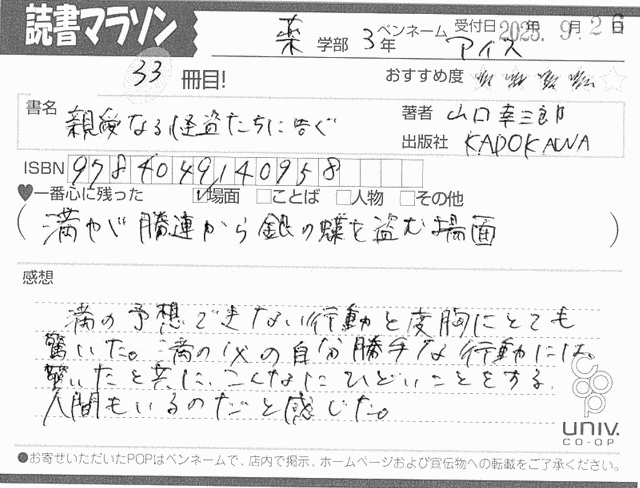 読書マラソン
薬 学部 3年 ペンネーム アイス 受付日 2025.年9.月26日
33 冊目!
おすすめ度 ★★★★☆
書名 親愛なる怪盗たちに告ぐ
著者 山口幸三郎
出版社 KADOKAWA
ISBN 9784049140958
♥一番心に残った ☑場面 □ことば □人物 □その他
(満が勝連から銀の蝶を盗む場面)
感想
満の予想できない行動と度胸にとても
驚いた。満の父の自分勝手な行動には。
驚いたと共に、こんなにひどいことをする
人間もいるのだと感じた。
UNIV.
CO-OP
●お寄せいただいたPOPはペンネームで、店内で掲示、ホームページおよび宣伝物への転載をご了承ください。